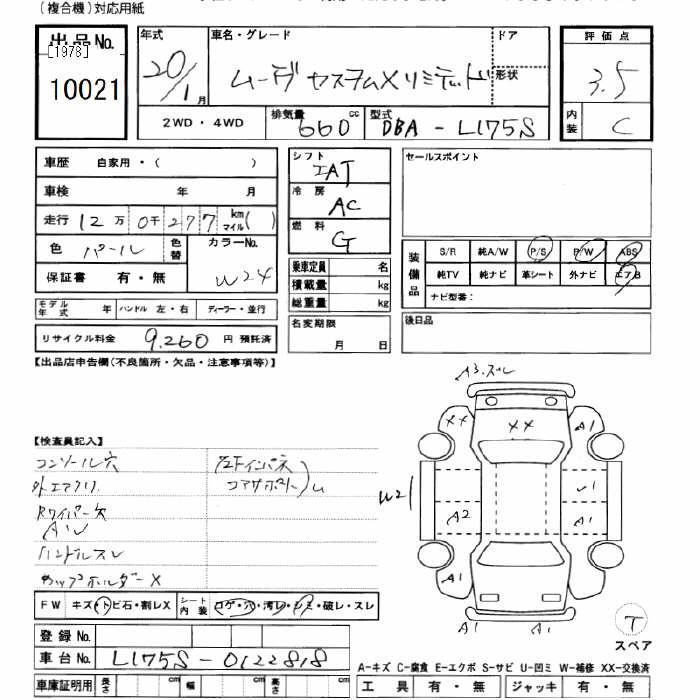 (複合機)対応用紙
出品No.
[1978]
10021
年式
20/1月
車名・グレード
ムーヴ カスタムXリミテッド
ドア
形状
2WD・4WD
排気量
660cc
型式
DBA-L175S
評価点
3.5
内装
C
車歴 自家用・( )
車検 年 月
走行 12万0千277km マイル( )
色 パール 色替 カラーNo. W24
保証書 有・無
モデル年式 ハンドル 左・右 ディーラー・並行
リサイクル料金 9,260円 預託済
シフト
IAT
冷房
AC
燃料
G
乗車定員 名
積載量 kg
総重量 kg
名変期限
月 日
セールスポイント
装備品
S/R 純A/W P/S P/W ABS
純TV 純ナビ 革シート 外ナビ エアB
ナビ型番:
後日品
【出品店申告欄(不良箇所・欠品・注意事項等)】
【検査員記入】
コンソール穴
外エアクリ
Rワイパー欠
ハンドルスレ
カップホルダーX
左Fインパネ
コアサポート
FW キズ・トビ石・割レX
シート内装 コゲ・穴・汚レ・シミ・破レ・スレ
登録No.
車台No. L175S-0122818
車庫証明用 長さ cm 幅 cm 高さ cm
A3.スレ
XX
XX
A1
W2
A2
A1
A1
A1
A1
T
スペア
A-キズ C-腐食 E-エクボ S-サビ U-凹ミ W-補修 XX-交換済
工具 有・無 ジャッキ 有・無